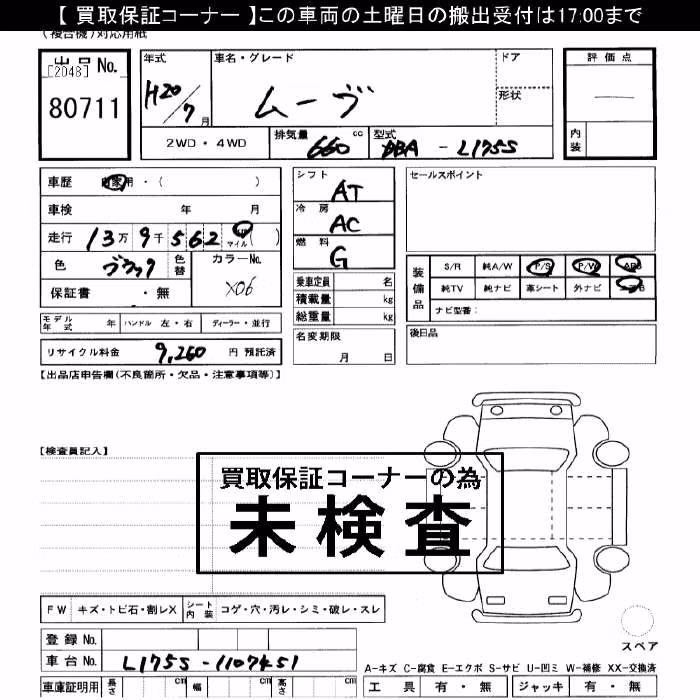 【 買取保証コーナー 】この車両の土曜日の搬出受付は17:00まで
(複合機)対応用紙
出品 No.
[2048]
80711
年式
H20/7月
車名・グレード
ムーヴ
ドア
形状
評価点
内装
2WD・4WD
排気量 660 cc
型式 DBA - L175S
車歴 自家用・( )
車検 年 月
走行 13万9千562 マイル( )
色 ブラック
色替
カラーNo.
X06
保証書 ・ 無
シフト AT
冷房 AC
燃料 G
乗車定員 名
積載量 kg
総重量 kg
セールスポイント
装備品
S/R 純A/W P/S P/W ABS
純TV 純ナビ 革シート 外ナビ
ナビ型番:
モデル年式 年 ハンドル 左・右 ディーラー・並行
名変期限
月 日
後日品
リサイクル料金 9,260 円 預託済
【出品店申告欄(不良箇所・欠品・注意事項等)】
【検査員記入】
買取保証コーナーの為
未検査
FW キズ・トビ石・割レX シート内装 コゲ・穴・汚レ・シミ・破レ・スレ
登録 No.
車台 No. L175S-1107451
車庫証明用 長さ cm 幅 cm 高さ cm
スペア
A-キズ C-腐食 E-エクボ S-サビ U-凹ミ W-補修 XX-交換済
工具 有・無 ジャッキ 有・無